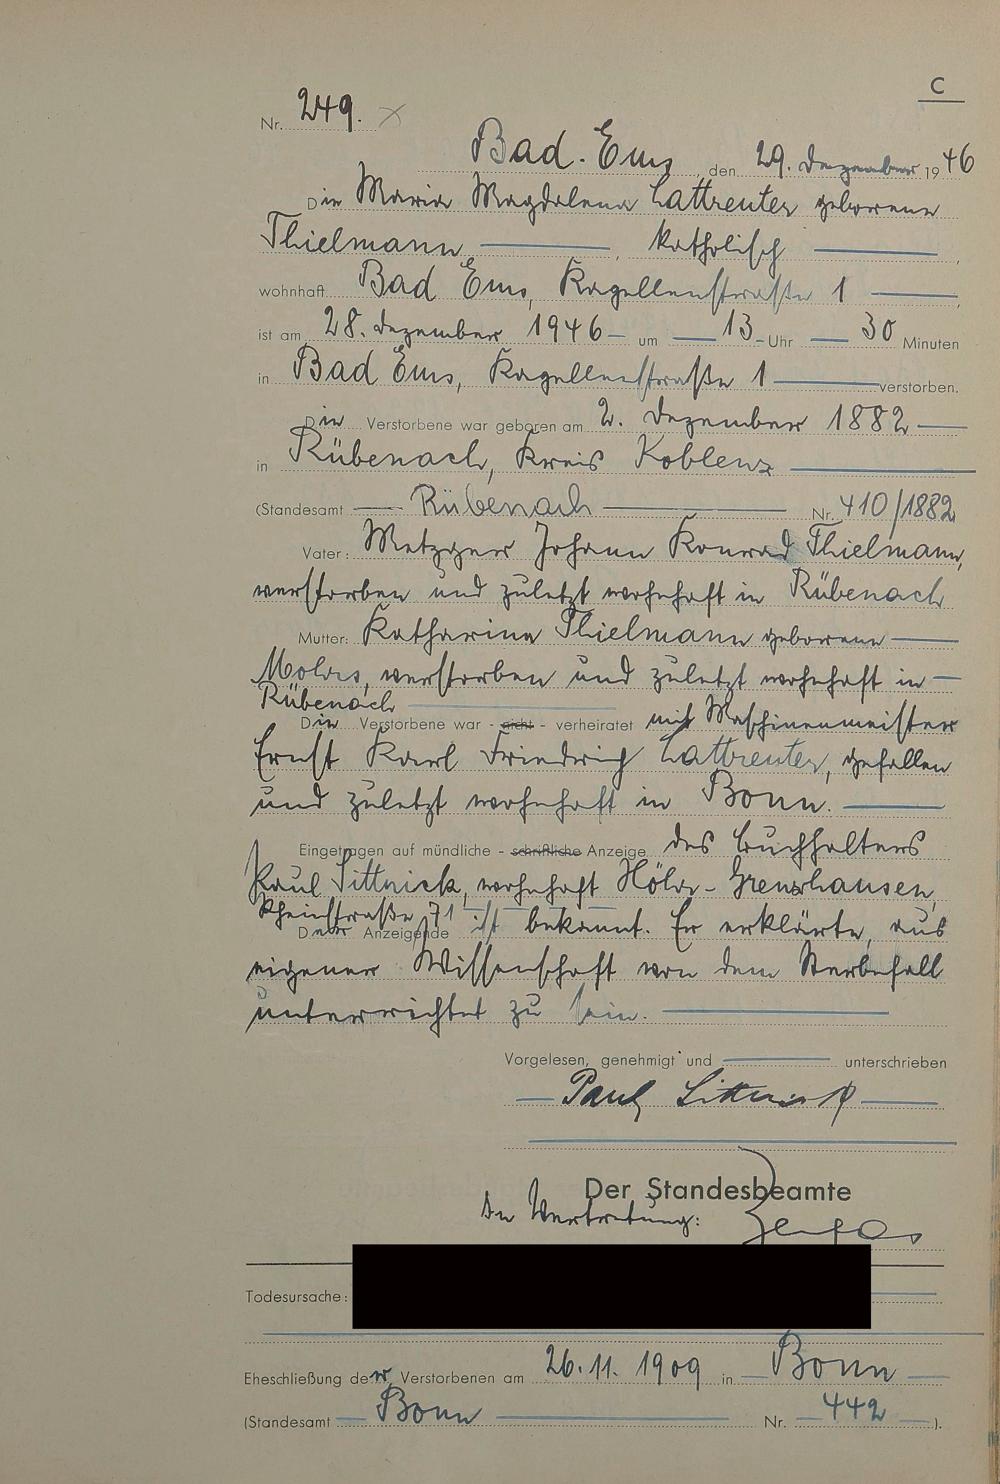 C
Nr. 249.
Bad-Ems, den 29. Dezember 1946
Die Maria Magdalena Lattreuter geborene
Thielmann, katholisch,
wohnhaft Bad Ems, Kapellenstraße 1,
ist am 28. Dezember 1946 um 13 Uhr 30 Minuten
in Bad Ems, Kapellenstraße 1 verstorben.
Die Verstorbene war geboren am 2. Dezember 1882
in Rübenach, Kreis Koblenz
(Standesamt Rübenach Nr. 410/1882
Vater: Metzger Johann Konrad Thielmann,
verstorben und zuletzt wohnhaft in Rübenach
Mutter: Katharina Thielmann geborene
verstorben und zuletzt wohnhaft in
Rübenach
Die Verstorbene war - nicht - verheiratet mit Maschinenmeister
Ernst Karl Friedrich Lattreuter, gefallen
und zuletzt wohnhaft in Bonn.
Eingetragen auf mündliche - schriftliche Anzeige des Buchhalters
Paul Sittnick, wohnhaft Höhr-Grenzhausen,
Rheinstraße 71 ist bekannt. Er erklärte, aus
Der Anzeigende
eigener Wissenschaft von dem Sterbefall
unterrichtet zu sein.
Vorgelesen, genehmigt und unterschrieben
Paul Sittnick
Der Standesbeamte
In Vertretung:
Todesursache:
Eheschließung der Verstorbenen am 26.11.1909 in Bonn
(Standesamt Bonn Nr. 442 ).